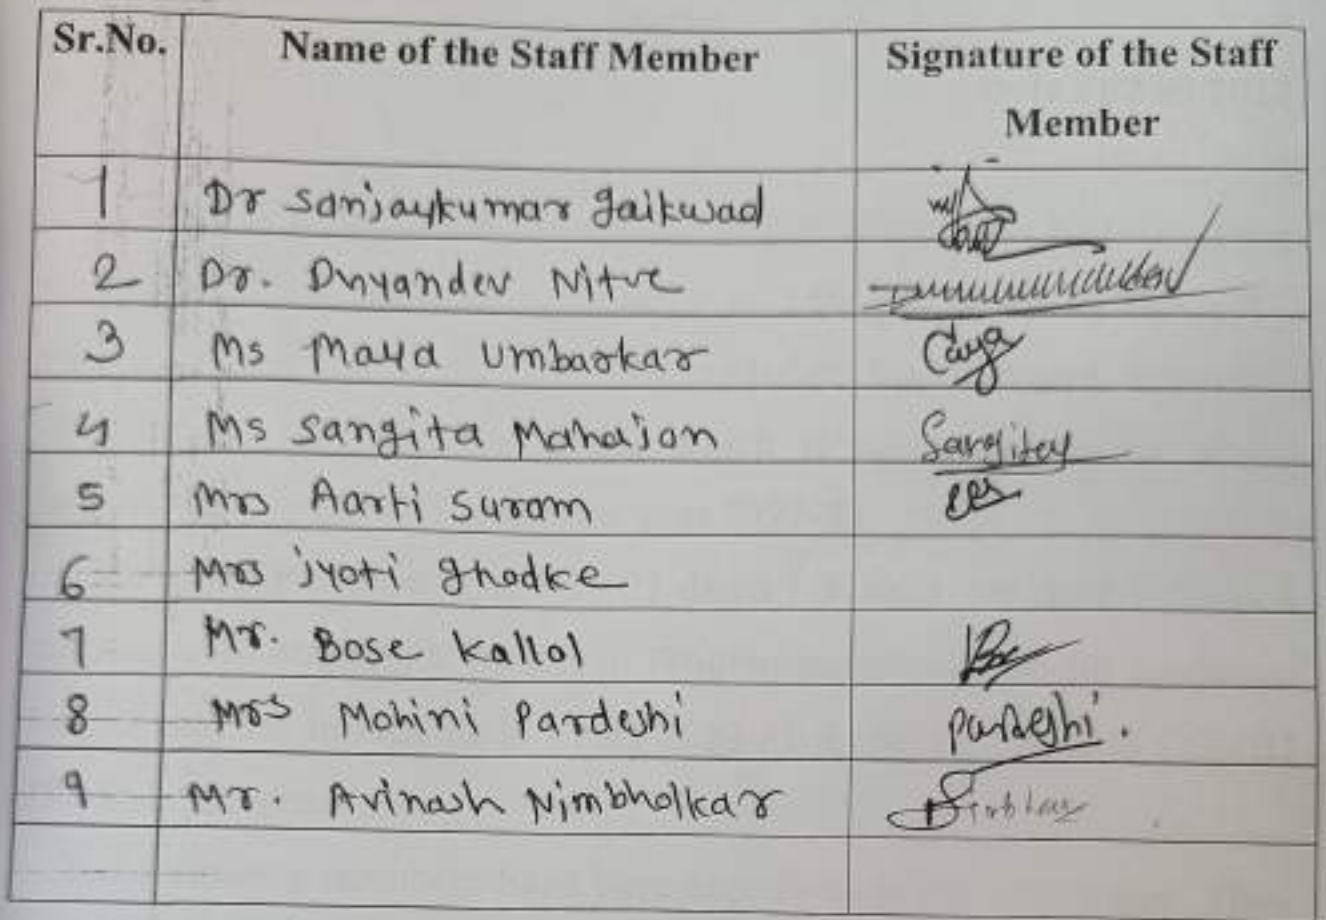 Sr.No. Name of the Staff Member Signature of the Staff Member
1 Dr Sanjaykumar gaikwad
2 Dr. Dnyandev Nitve
3 Ms Maya Umbarkar
4 Ms Sangita Mahajan Sangita
5 Mrs Aarti Suram
6 Mrs jyoti ghodke
7 Mr. Bose kallol
8 Mrs Mohini Pardeshi Pardeshi.
9 Mr. Avinash Nimbholkar